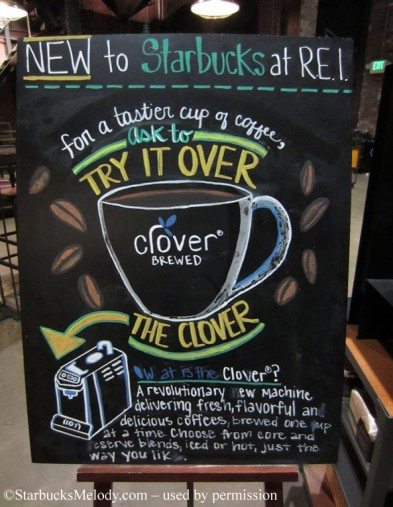 NEW to Starbucks at R.E.I.
for a tastier cup of coffee,
ask to
TRY IT OVER
clover®
BREWED
THE CLOVER
What is the Clover®?
A revolutionary new machine
delivering fresh, flavorful and
delicious coffees, brewed one cup
at a time. Choose from core and
reserve blends, iced or hot, just the
way you lik
EXIT
©StarbucksMelody.com – used by permission